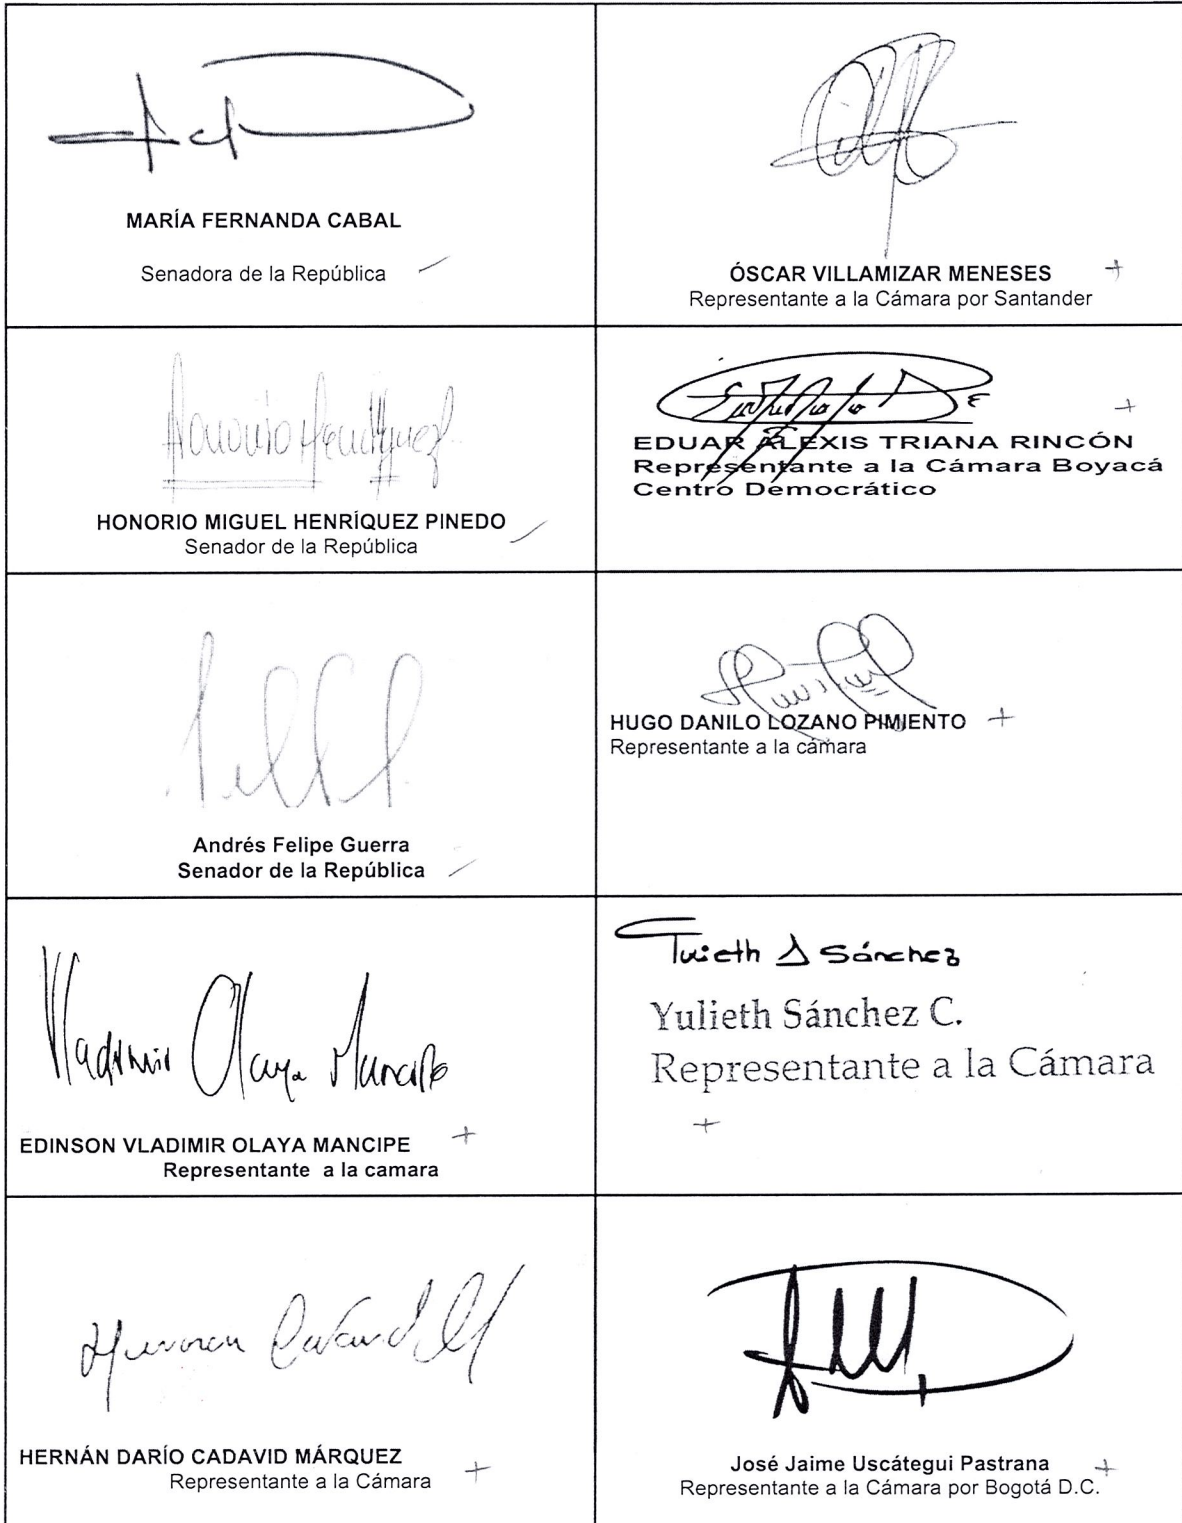 MARÍA FERNANDA CABAL
Senadora de la República
ÓSCAR VILLAMIZAR MENESES
Representante a la Cámara por Santander
Honorio Henríquez
HONORIO MIGUEL HENRÍQUEZ PINEDO
Senador de la República
EDUAR ALEXIS TRIANA RINCÓN
Representante a la Cámara Boyacá
Centro Democrático
Andrés Felipe Guerra
Senador de la República
HUGO DANILO LOZANO PIMIENTO
Representante a la cámara
Vladimir Olaya Mancipe
EDINSON VLADIMIR OLAYA MANCIPE
Representante a la camara
Sánchez
Yulieth Sánchez C.
Representante a la Cámara
HERNÁN DARÍO CADAVID MÁRQUEZ
Representante a la Cámara
José Jaime Uscátegui Pastrana
Representante a la Cámara por Bogotá D.C.